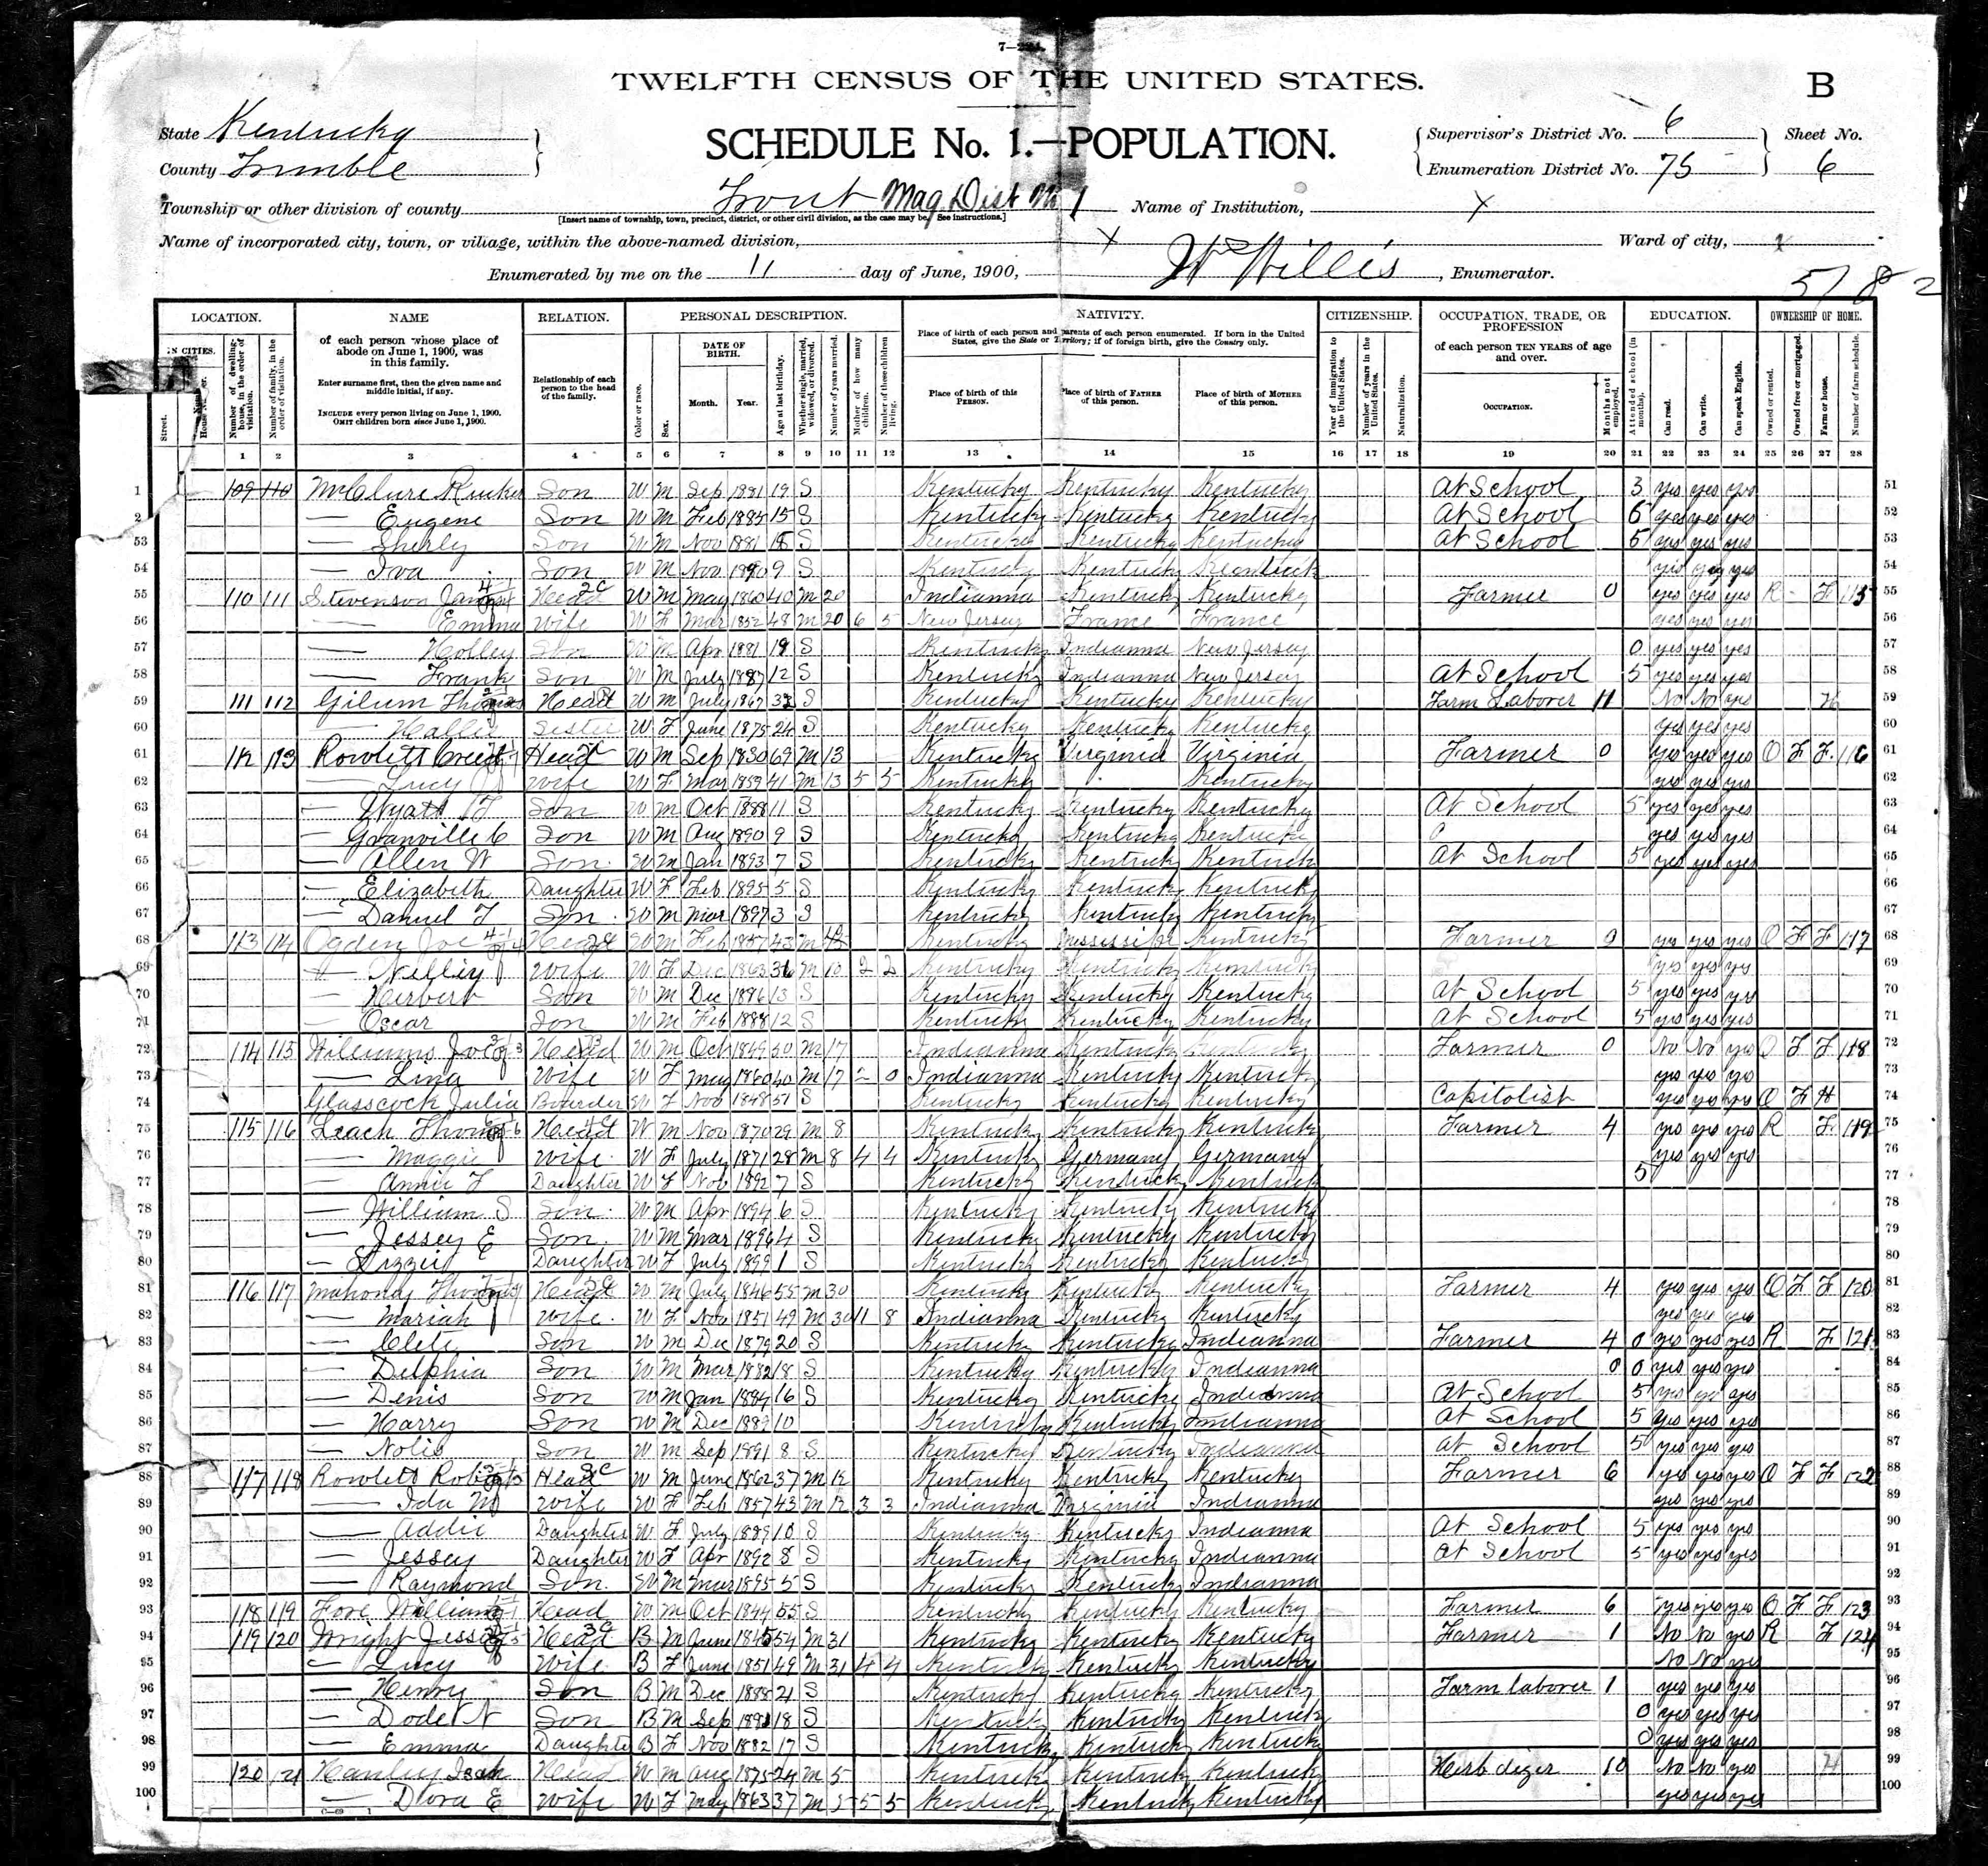 TWELFTH CENSUS OF THE UNITED STATES.
B
State Kentucky
County Trimble
SCHEDULE No. 1.—POPULATION.
Supervisor's District No. 6
Enumeration District No. 75
Sheet No. 6
Township or other division of county Trout Mag. Dist No 1
[Insert name of township, town, precinct, district, or other civil division, as the case may be. See instructions.]
Name of Institution, X
Name of incorporated city, town, or village, within the above-named division, X
Ward of city, x
Enumerated by me on the 11 day of June, 1900, Wm Willis, Enumerator.
LOCATION. NAME RELATION. PERSONAL DESCRIPTION. NATIVITY. CITIZENSHIP. OCCUPATION, TRADE, OR PROFESSION EDUCATION. OWNERSHIP OF HOME.
IN CITIES. Street. House Number. Number of dwelling-house, in the order of visitation. Number of family, in the order of visitation.
of each person whose place of abode on June 1, 1900, was in this family.
Enter surname first, then the given name and middle initial, if any.
INCLUDE every person living on June 1, 1900. OMIT children born since June 1, 1900.
Relationship of each person to the head of the family.
Color or race. Sex. DATE OF BIRTH. Month. Year. Age at last birthday. Whether single, married, widowed, or divorced. Number of years married. Mother of how many children. Number of these children living.
Place of birth of each person and parents of each person enumerated. If born in the United States, give the State or Territory; if of foreign birth, give the Country only.
Place of birth of this PERSON. Place of birth of FATHER of this person. Place of birth of MOTHER of this person.
Year of immigration to the United States. Number of years in the United States. Naturalization.
of each person TEN YEARS of age and over.
OCCUPATION. Months not employed.
Attended school (in months). Can read. Can write. Can speak English.
Owned or rented. Owned free or mortgaged. Farm or house. Number of farm schedule.
1 2 3 4 5 6 7 8 9 10 11 12 13 14 15 16 17 18 19 20 21 22 23 24 25 26 27 28
109 110 McClure Rucker Son W M Sep 1881 19 S Kentucky Kentucky Kentucky At School 3 yes yes yes 51
— Eugene Son W M Feb 1885 15 S Kentucky Kentucky Kentucky At School 5 yes yes yes 52
53 — Sherly Son W M Nov 1881 S Kentucky Kentucky Kentucky At School 5 yes yes yes 53
54 — Iva Son W M Nov 1890 9 S Kentucky Kentucky Kentucky yes yes yes 54
55 110 111 Stevenson James Head W M May 1860 40 M 20 Indianna Kentucky Kentucky Farmer 0 yes yes yes R F 115 55
56 — Emma Wife W F Mar 1852 48 M 20 6 5 New Jersey France France yes yes yes 56
57 — Holley Son W M Apr 1881 19 S Kentucky Indianna New Jersey 0 yes yes yes 57
58 — Frank Son W M July 1887 12 S Kentucky Indianna New Jersey At School 5 yes yes yes 58
59 111 112 Gilum Thomas Head W M July 1867 32 S Kentucky Kentucky Kentucky Farm Laborer 11 No No yes H 59
60 — Hallie Sister W F June 1875 24 S Kentucky Kentucky Kentucky yes yes yes 60
61 112 113 Rowlett Creed Head W M Sep 1830 69 M 13 Kentucky Virginia Virginia Farmer 0 yes yes yes O F F 116 61
62 — Lucy Wife W F Mar 1859 41 M 13 5 5 Kentucky Kentucky yes yes yes 62
63 — Wyatt T Son W M Oct 1888 11 S Kentucky Kentucky Kentucky At School 5 yes yes yes 63
64 — Granville C Son W M Aug 1890 9 S Kentucky Kentucky Kentucky yes yes yes 64
65 — Allen W Son W M Jan 1893 7 S Kentucky Kentucky Kentucky At School 5 yes yes yes 65
66 — Elizabeth Daughter W F Feb 1895 5 S Kentucky Kentucky Kentucky 66
67 — Daniel T Son W M Mar 1897 3 S Kentucky Kentucky Kentucky 67
68 113 114 Ogden Joe Head W M Feb 1857 43 M Kentucky Mississippi Kentucky Farmer 0 yes yes yes O F F 117 68
69 — Nelley Wife W F Dec 1863 36 M 10 2 2 Kentucky Kentucky Kentucky yes yes yes 69
70 — Herbert Son W M Dec 1886 13 S Kentucky Kentucky Kentucky At School 5 yes yes yes 70
71 — Oscar Son W M Feb 1888 12 S Kentucky Kentucky Kentucky At School 5 yes yes yes 71
72 114 115 Williams Joe Head W M Oct 1849 50 M 17 Indianna Kentucky Kentucky Farmer 0 No No yes O F F 118 72
73 — Lina Wife W F May 1860 40 M 17 2 0 Indianna Kentucky Kentucky yes yes yes 73
74 Glasscock Julia Boarder W F Nov 1848 51 S Kentucky Kentucky Kentucky Capitolist yes yes yes O F H 74
75 115 116 Leach Thomas Head W M Nov 1870 29 M 8 Kentucky Kentucky Kentucky Farmer 4 yes yes yes R F 119 75
76 — Maggie Wife W F July 1871 28 M 8 4 4 Kentucky Germany Germany yes yes yes 76
77 — Annie F Daughter W F Nov 1892 7 S Kentucky Kentucky Kentucky 5 77
78 — William S Son W M Apr 1894 6 S Kentucky Kentucky Kentucky 78
79 — Jessey E Son W M Mar 1896 4 S Kentucky Kentucky Kentucky 79
80 — Lizzie Daughter W F July 1899 1 S Kentucky Kentucky Kentucky 80
81 116 117 Mahoney Thomas Head W M July 1846 55 M 30 Kentucky Kentucky Kentucky Farmer 4 yes yes yes O F F 120 81
82 — Mariah Wife W F Nov 1851 49 M 30 11 8 Indianna Kentucky Kentucky yes yes yes 82
83 — Clete Son W M Dec 1879 20 S Kentucky Kentucky Indianna Farmer 4 0 yes yes yes R F 121 83
84 — Delphia Son W M Mar 1882 18 S Kentucky Kentucky Indianna 0 0 yes yes yes 84
85 — Denis Son W M Jan 1884 16 S Kentucky Kentucky Indianna At School 5 yes yes yes 85
86 — Harry Son W M Dec 1889 10 Kentucky Kentucky Indianna At School 5 yes yes yes 86
87 — Nolie Son W M Sep 1891 8 S Kentucky Kentucky Indianna At School 5 yes yes yes 87
88 117 118 Rowlett Robt Head W M June 1862 37 M 12 Kentucky Kentucky Kentucky Farmer 6 yes yes yes O F F 122 88
89 — Ida M Wife W F Feb 1857 43 M 12 3 3 Indianna Virginia Indianna yes yes yes 89
90 — Addie Daughter W F July 1889 10 S Kentucky Kentucky Indianna At School 5 yes yes yes 90
91 — Jessey Daughter W F Apr 1892 8 S Kentucky Kentucky Indianna At School 5 yes yes yes 91
92 — Raymond Son W M Mar 1895 5 S Kentucky Kentucky Indianna 92
93 118 119 Fore William Head W M Oct 1844 55 S Kentucky Kentucky Kentucky Farmer 6 yes yes yes O F F 123 93
94 119 120 Wright Jesse Head B M June 1845 54 M 31 Kentucky Kentucky Kentucky Farmer 1 No No yes R F 124 94
95 — Lucy Wife B F June 1851 49 M 31 4 4 Kentucky Kentucky Kentucky No No yes 95
96 — Henry Son B M Dec 1888 21 S Kentucky Kentucky Kentucky Farm laborer 1 yes yes yes 96
97 — Dode N Son B M Sep 18 S Kentucky Kentucky Kentucky 0 yes yes yes 97
98 — Emma Daughter B F Nov 1882 17 S Kentucky Kentucky Kentucky 0 yes yes yes 98
99 120 121 Hanley Head W M Aug 1875 24 M 5 Kentucky Kentucky Kentucky Herb diger 10 No No yes H 99
100 — Dora E Wife W F May 1863 37 M 5 5 5 Kentucky Kentucky Kentucky yes yes yes 100